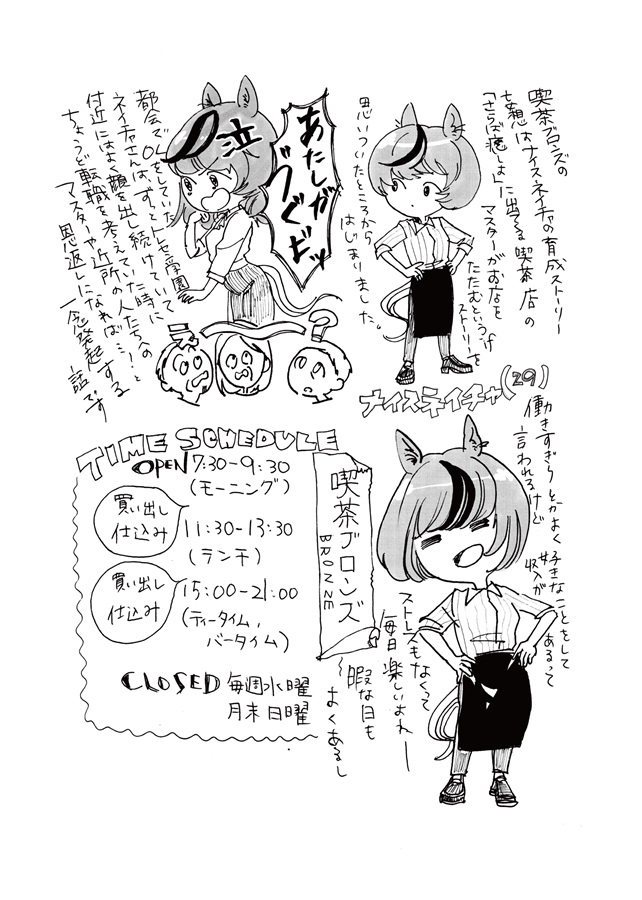 喫茶ブロンズの
妄想はナイスネイチャの育成ストーリー
「さらば癒しよ」に出てくる喫茶店の
マスターがお店を
たたむという
ストーリーを
思いついたところから
はじまりました。
あたしが
つぐだッ
泣
都会でOLをしていた
ネイチャさんは、ずっとトレセン学園
付近にはよく顔を出し続けていて
ちょうど転職を考えていた時に
マスターや近所の人たちへの
恩返しになれば…!と
一念発起する
話です
?
ナイスネイチャ(29)
働きすぎらとかよく
言われるけど
好きなことをして
収入が
あるって
ストレスもなくって
毎日楽しいよねー
〜暇な日も
よくあるし
TIME SCHEDULE
OPEN 7:30-9:30
(モーニング)
買い出し
仕込み
11:30-13:30
(ランチ)
買い出し
仕込み
15:00-21:00
(ティータイム,
バータイム)
CLOSED 毎週水曜
月末日曜
喫茶ブロンズ
BRONZE